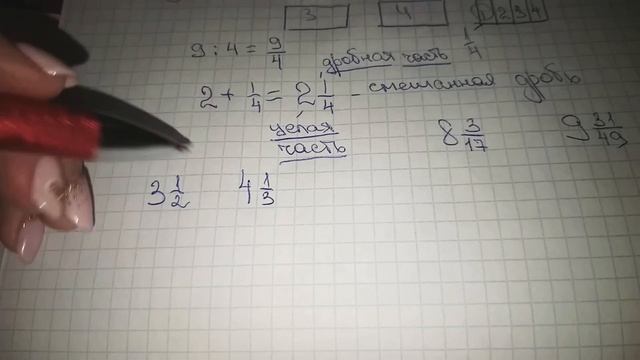 3 4 1 2 3 4
9 : 4 = 9/4 дробная часть 1/4
2 + 1/4 = 2 1/4 – смешанная дробь
целая часть 8 3/17 9 31/49
3 1/2 4 1/3